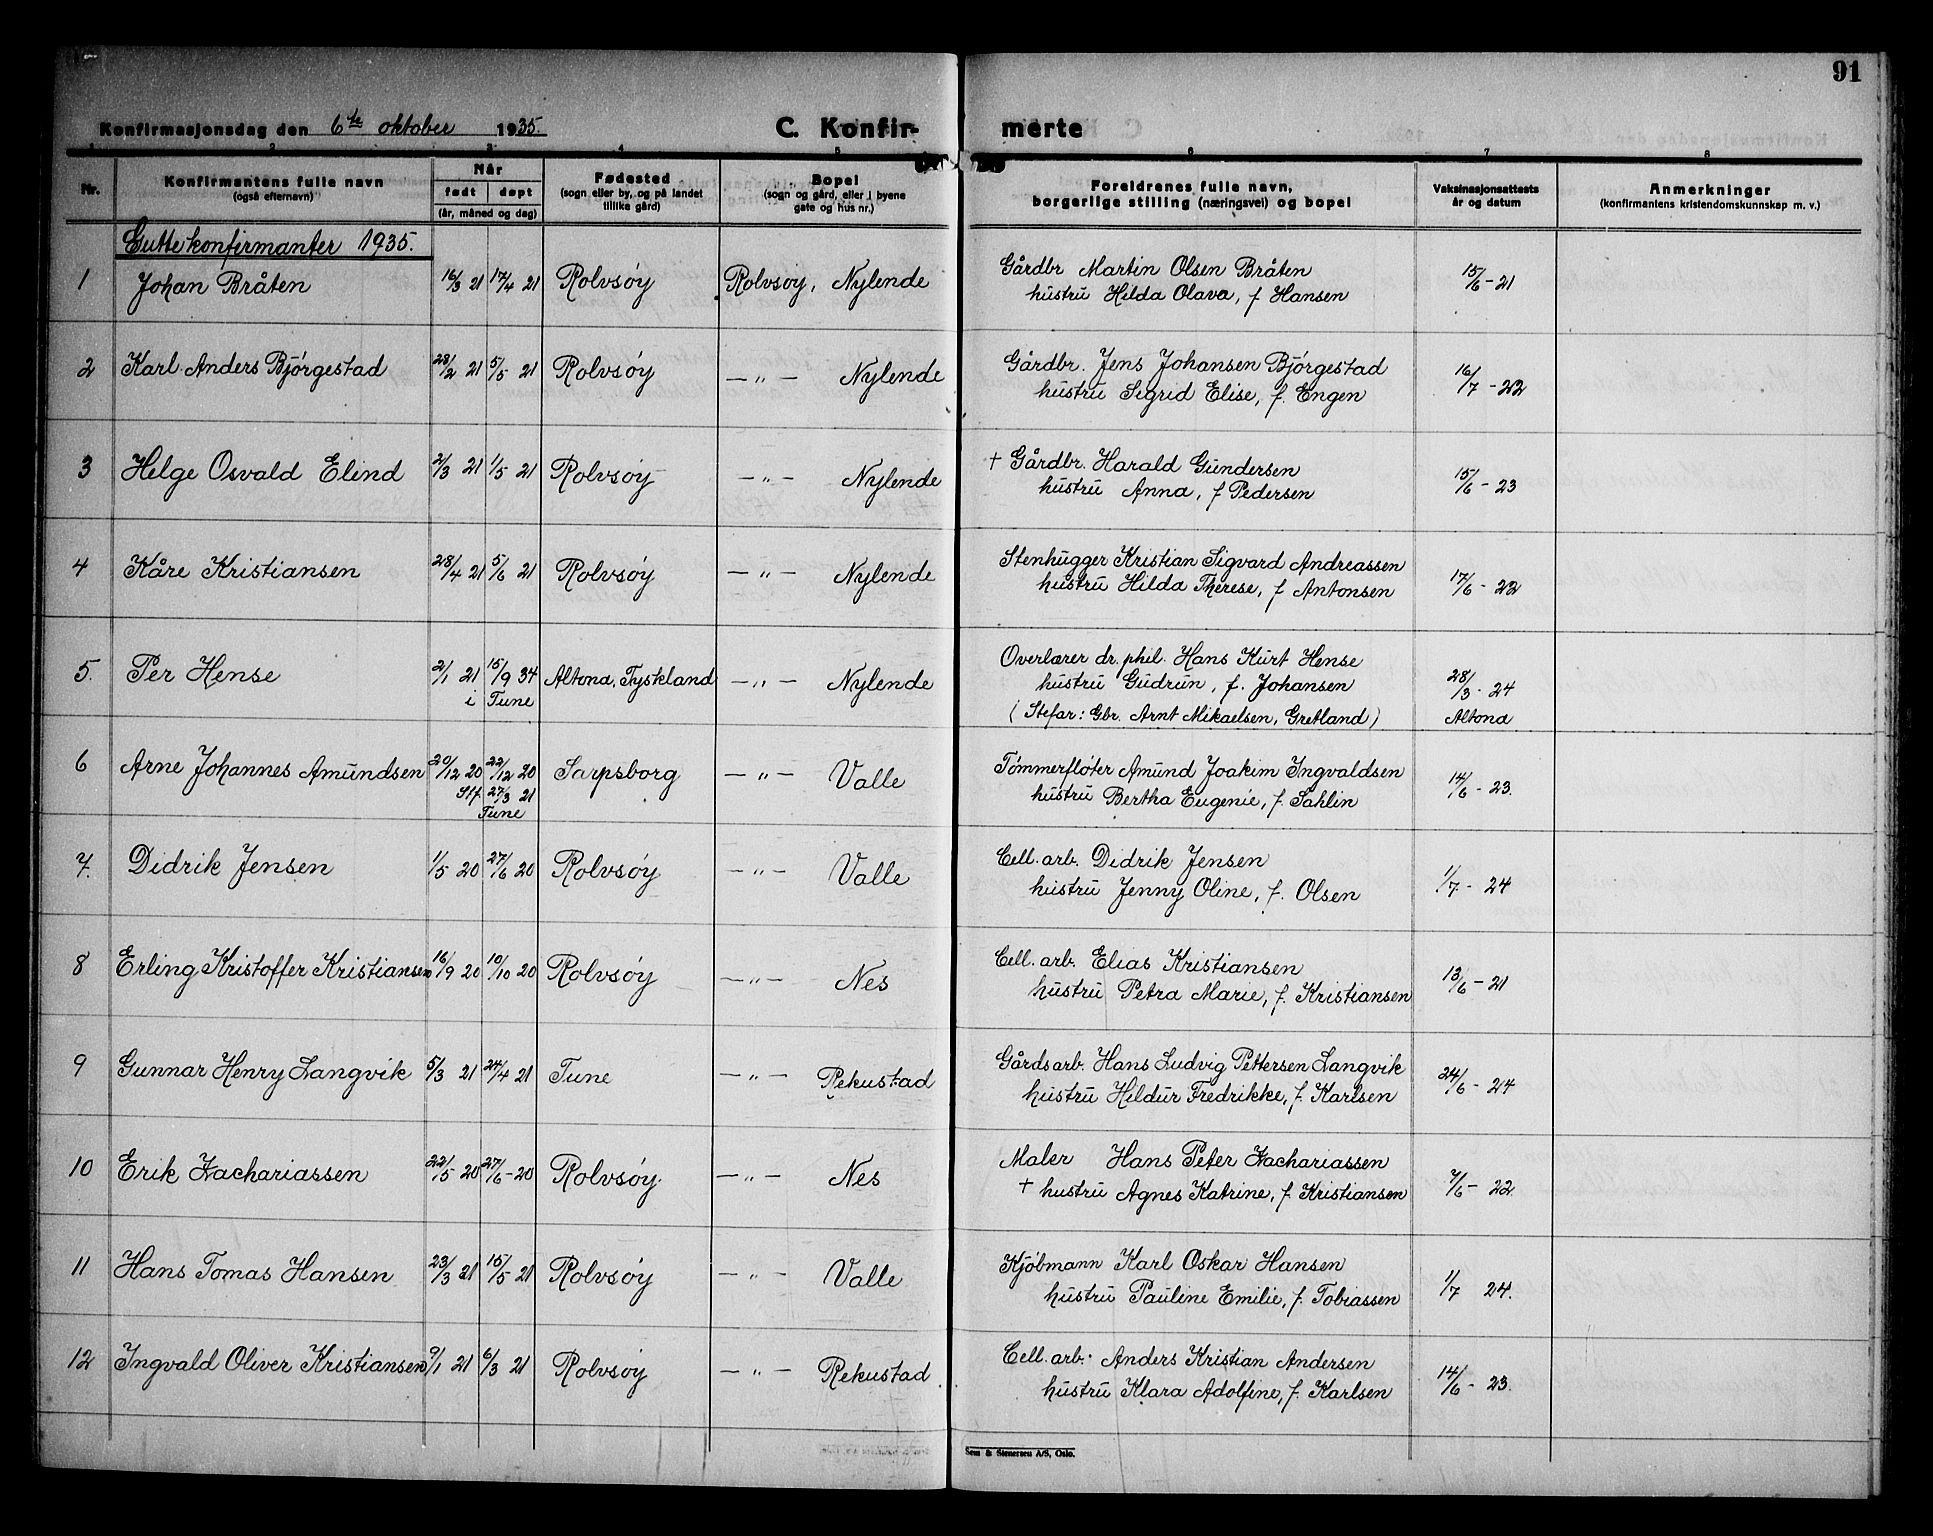 91
Konfirmasjonsdag den 6te oktober 1935. C. Konfir- merte
1 2 3 4 5 6 7 8
Nr. Konfirmantens fulle navn (også efternavn) Når født døpt (år, måned og dag) Fødested (sogn eller by, og på landet tillike gård) Bopel (sogn og gård, eller i byene gate og hus nr.) Foreldrenes fulle navn, borgerlige stilling (næringsvei) og bopel Vaksinasjonsattests år og datum Anmerkninger (konfirmantens kristendomskunnskap m. v.)
Guttekonfirmanter 1935.
1 Johan Bråten 16/3 21 17/4 21 Rolvsøy Rolvsøy, Nylende Gårdbr Martin Olsen Bråten 15/6-21
hustru Hilda Olava, f Hansen
2 Karl Anders Bjørgestad 28/2 21 5/5 21 Rolvsøy —"— Nylende Gårdbr. Jens Johansen Bjørgestad 16/7-22
hustru Sigrid Elise, f. Engen
3 Helge Osvald Elind 2/3 21 1/5 21 Rolvsøy —"— Nylende + Gårdbr. Harald Gundersen 15/6-23
hustru Anna, f Pedersen
4 Kåre Kristiansen 28/4 21 5/6 21 Rolvsøy —"— Nylende Stenhugger Kristian Sigvard Andreassen 17/6-22
hustru Hilda Therese, f Antonsen
5. Per Hense 2/1 21 15/9 34 Altona, Tyskland —"— Nylende Overlærer dr. phil. Hans Kurt Hense 28/3-24
i Tune hustru Gudrun, f. Johansen
(Stefar: Gbr. Arnt Mikaelsen, Gretland) Altona
6 Arne Johannes Amundsen 20/12 20 22/12 20 Sarpsborg —"— Valle Tømmerfløter Amund Joakim Ingvaldsen 14/6-23.
Stf. 27/3 21 hustru Bertha Eugenie, f. Sahlin
Tune
7. Didrik Jensen 1/5 20 27/6 20 Rolvsøy —"— Valle Cell. arb. Didrik Jensen 1/7-24
hustru Jenny Oline, f. Olsen
8 Erling Kristoffer Kristiansen 16/9 20 10/10 20 Rolvsøy —"— Nes Cell. arb. Elias Kristiansen 13/6-21
hustru Petra Marie, f. Kristiansen
9 Gunnar Henry Langvik 5/3 21 24/4 21 Tune —"— Rekustad Gårdsarb. Hans Ludvig Pettersen Langvik 24/6-24
hustru Hildur Fredrikke, f. Karlsen
10 Erik Zachariassen 22/5 20 27/6-20 Rolvsøy. —"— Nes Maler Hans Peter Zachariassen 7/6-22
+ hustru Agnes Katrine, f. Kristiansen
11 Hans Tomas Hansen 23/3 21 15/5 21 Rolvsøy —"— Valle Kjøbmann Karl Oskar Hansen 1/7 24.
hustru Pauline Emilie, f. Tobiassen
12 Ingvald Oliver Kristiansen 9/1 21 6/3 21 Rolvsøy —"— Rekustad Cell. arb. Anders Kristian Andersen 14/6-23.
hustru Klara Adolfine, f. Karlsen
Sem & Stenersen A/S, Oslo.